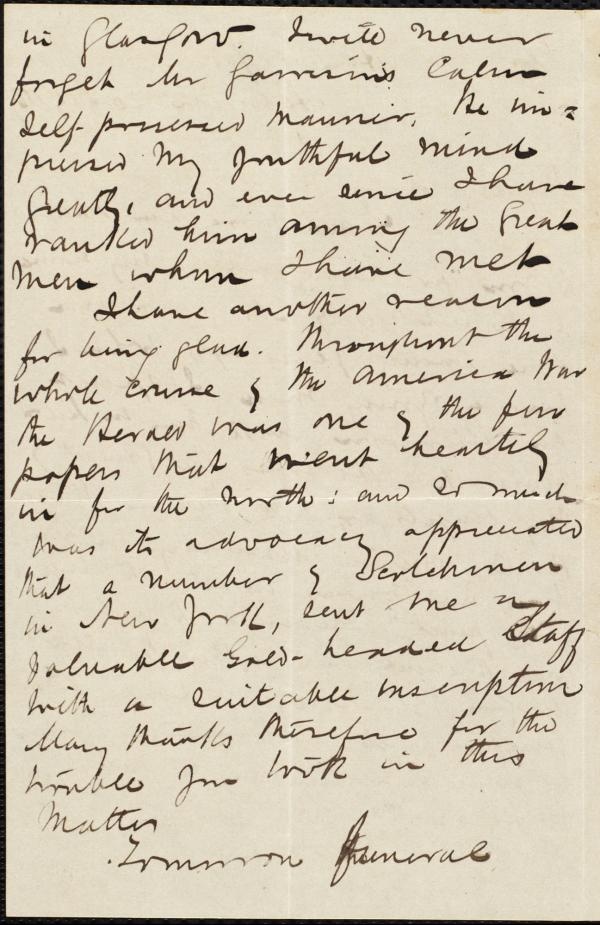 in Glasgow. I will never
forget Mr Garrison's Calm
Self-possessed manner. He im=
pressed my youthful mind
greatly, and ever since I have
ranked him among the Great
Men whom I have met
I have another reason
for being glad. Throughout the
whole course of the America War
the Herald was one of the few
papers that went heartily
in for the North: and so much
was its advocacy appreciated
that a number of Scotchmen
in New York, sent me a
valuable Gold-headed Staff
with a suitable inscription
Many thanks therefore for the
trouble you took in this
Matter
Tomorrow Funeral